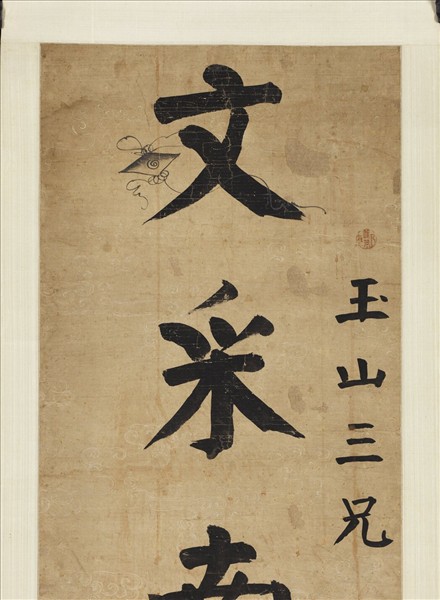 玉山三兄
文采